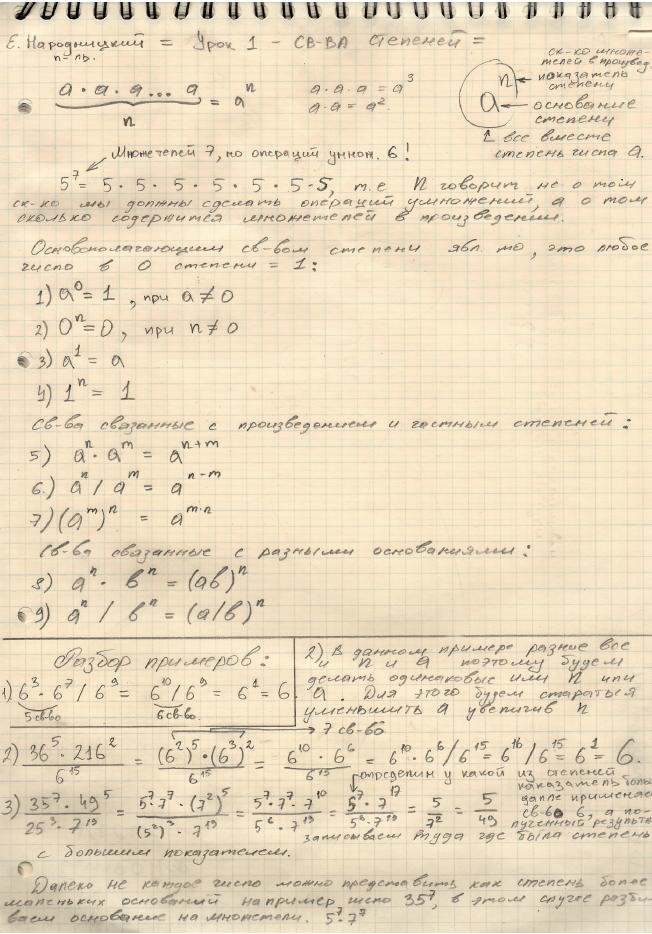 Е. Народницкий = Урок 1 - СВ-ВА степеней =
n - ль.
a · a · a ... a = aⁿ
n
a · a · a = a³
a · a = a²
ск-ко множе-
телей в произвед.
n ← показатель
степени
a ← основание
степени
все вместе
степень числа a.
Множетелей 7, но операций умнож. 6!
5⁷ = 5 · 5 · 5 · 5 · 5 · 5 · 5, т.е n говорит не о том
ск-ко мы должны сделать операций умножений, а о том
сколько содержится множетелей в произведении.
Основополагающим св-вом степени явл. то, это любое
число в 0 степени = 1:
1) a⁰ = 1, при a ≠ 0
2) 0ⁿ = 0, при n ≠ 0
3) a¹ = a
4) 1ⁿ = 1
Св-ва связанные с произведением и частным степеней:
5) aⁿ · aᵐ = aⁿ⁺ᵐ
6.) aⁿ / aᵐ = aⁿ⁻ᵐ
7) (aᵐ)ⁿ = aᵐ·ⁿ
Св-ва связанные с разными основаниями:
8) aⁿ · bⁿ = (ab)ⁿ
9) aⁿ / bⁿ = (a/b)ⁿ
Разбор примеров:
1) 6³ · 6⁷ / 6⁹ = 6¹⁰ / 6⁹ = 6¹ = 6.
5 св-во 6 св-во.
2) В данном примере разные все
и n и a поэтому будем
делать одинаковые или n или
a. Для этого будем стараться
уменьшить a увеличив n
7 св-во
2) 36⁵ · 216² / 6¹⁵ = (6²)⁵ · (6³)² / 6¹⁵ = 6¹⁰ · 6⁶ / 6¹⁵ = 6¹⁰ · 6⁶ / 6¹⁵ = 6¹⁶ / 6¹⁵ = 6¹ = 6.
3) 35⁷ · 49⁵ / 25³ · 7¹⁹ = 5⁷ · 7⁷ · (7²)⁵ / (5²)³ · 7¹⁹ = 5⁷ · 7⁷ · 7¹⁰ / 5⁶ · 7¹⁹ = 5⁷ · 7¹⁷ / 5⁶ · 7¹⁹ = 5 / 7² = 5 / 49
определим у какой из степеней
показатель больш
далее применяем
св-во 6, а по-
лученный результа
записываем туда где была степень
с большим показателем.
Далеко не каждое число можно представить как степень более
маленьких оснований например число 35⁷, в этом случае разби-
ваем основание на множетели. 5⁷ · 7⁷